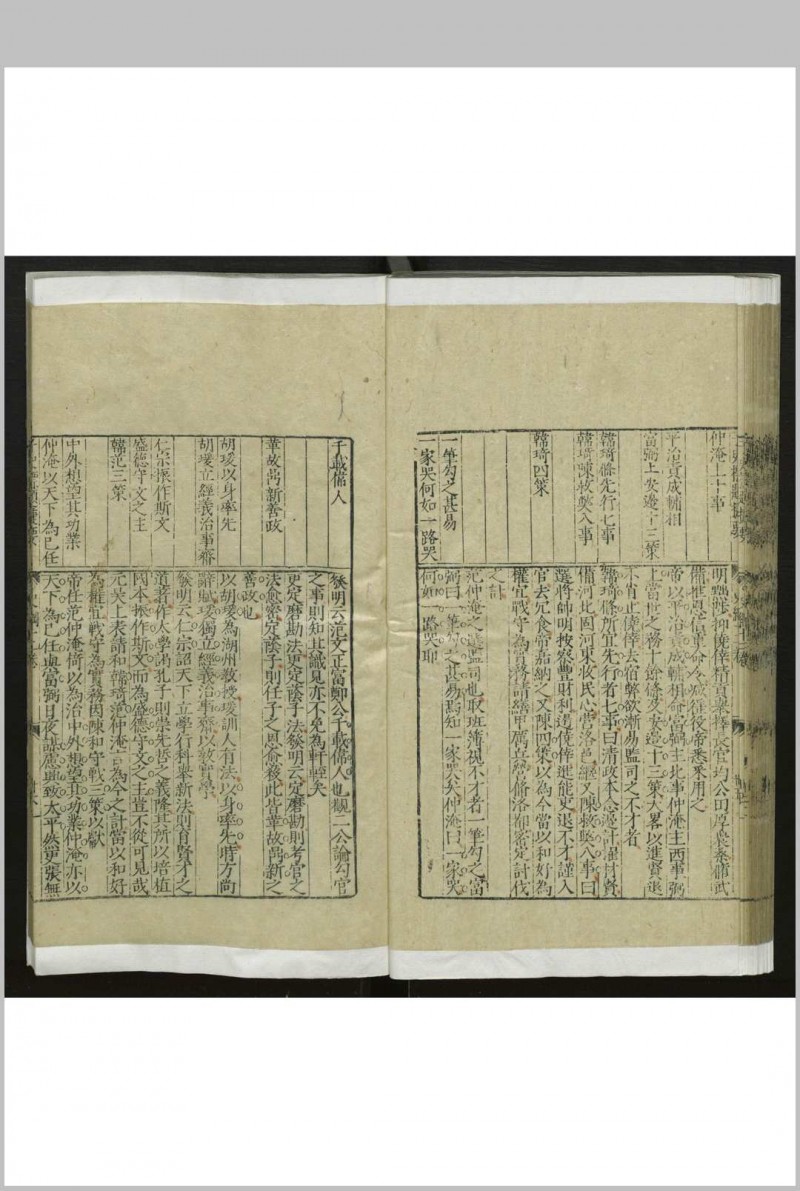 仲淹上十事
平治責成輔相
富弼上安邊十三策
韓琦條先行七事
韓琦陳救獘八事
韓琦四策
一筆勾之甚易
一家哭何如一路哭
明黜陟抑僥倖精貢舉擇長官均公田厚農桑脩武
備推恩信重命令减徭役帝悉采用之
帝以平治責成輔相命富弼主北事仲淹主西事弼
上當世之務十餘條及安邊十三策大畧以進賢退
不肖止僥倖去宿弊欲漸易監司之不才者
韓琦條所宜先行者七事曰清政本念邊計擢材賢
備河北固河東收民心營洛邑繼又陳救獘八事曰
選將帥明按察豐財利遏僥倖進能吏退不才謹入
官去冗食帝嘉納之又陳四策以為今當以和好為
權宜戰守為實務請繕甲厲兵營脩洛都密定討伐
之計
范仲淹之選監司也取班簿視不才者一筆勾之富
弼曰一筆勾之甚易焉知一家哭矣仲淹曰一家哭
何如一路哭耶
千載偹人
革故啇新善政
胡瑗以身率先
胡瑗立經義治事齋
仁宗振作斯文
盛德守文之主
韓范三策
中外想望其功業
仲淹以天下為已任
發明云范文正富鄭公千載偹人也觀二公論勾官
之事則知其識見亦不免為軒輊矣
更定磨勘法更定蔭子法發明云定磨勘則考官之
法愈密定蔭子則任子之恩愈殺此皆革故啇新之
善政也
以胡瑗為湖州教授瑗訓人有法以身率先時方尚
辭賦瑗獨立經義治事齋以敦實學
發明云仁宗詔天下立學行科舉新法則育賢才之
道著作太學謁孔子則崇先哲之義隆其所以培植
國本振作斯文而為盛德守文之主豈不從可見哉
元昊上表請和韓琦范仲淹言為今之計當以和好
為權宜戰守為實務因陳和守戰三策以獻
帝任范仲淹倚以為治中外想望其功業仲淹亦以
天下為已任與富弼日夜謀慮興致太平然更張無